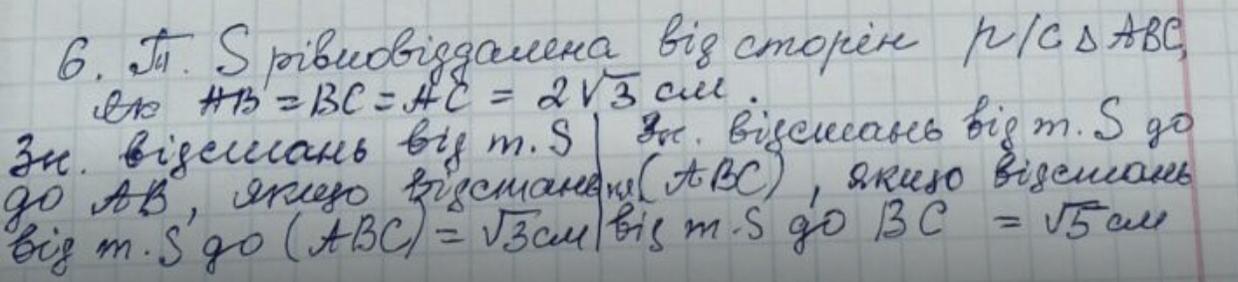 6. Т. S рівновіддалена від сторін р/с △ ABC,
AB = BC = AC = 2√3 см.
Зн. відстань від т. S
до AB, якщо відстань
від т. S до (ABC) = √3 см
Зн. відстань від т. S до
(ABC), якщо відстань
від т. S до BC = √5 см